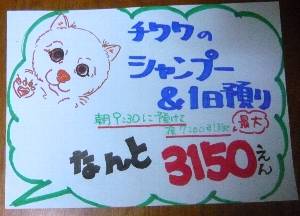 チワワの
シャンプー
&1日預り
朝9:30に預けて
夜7:00お迎え
最大
なんと3150えん